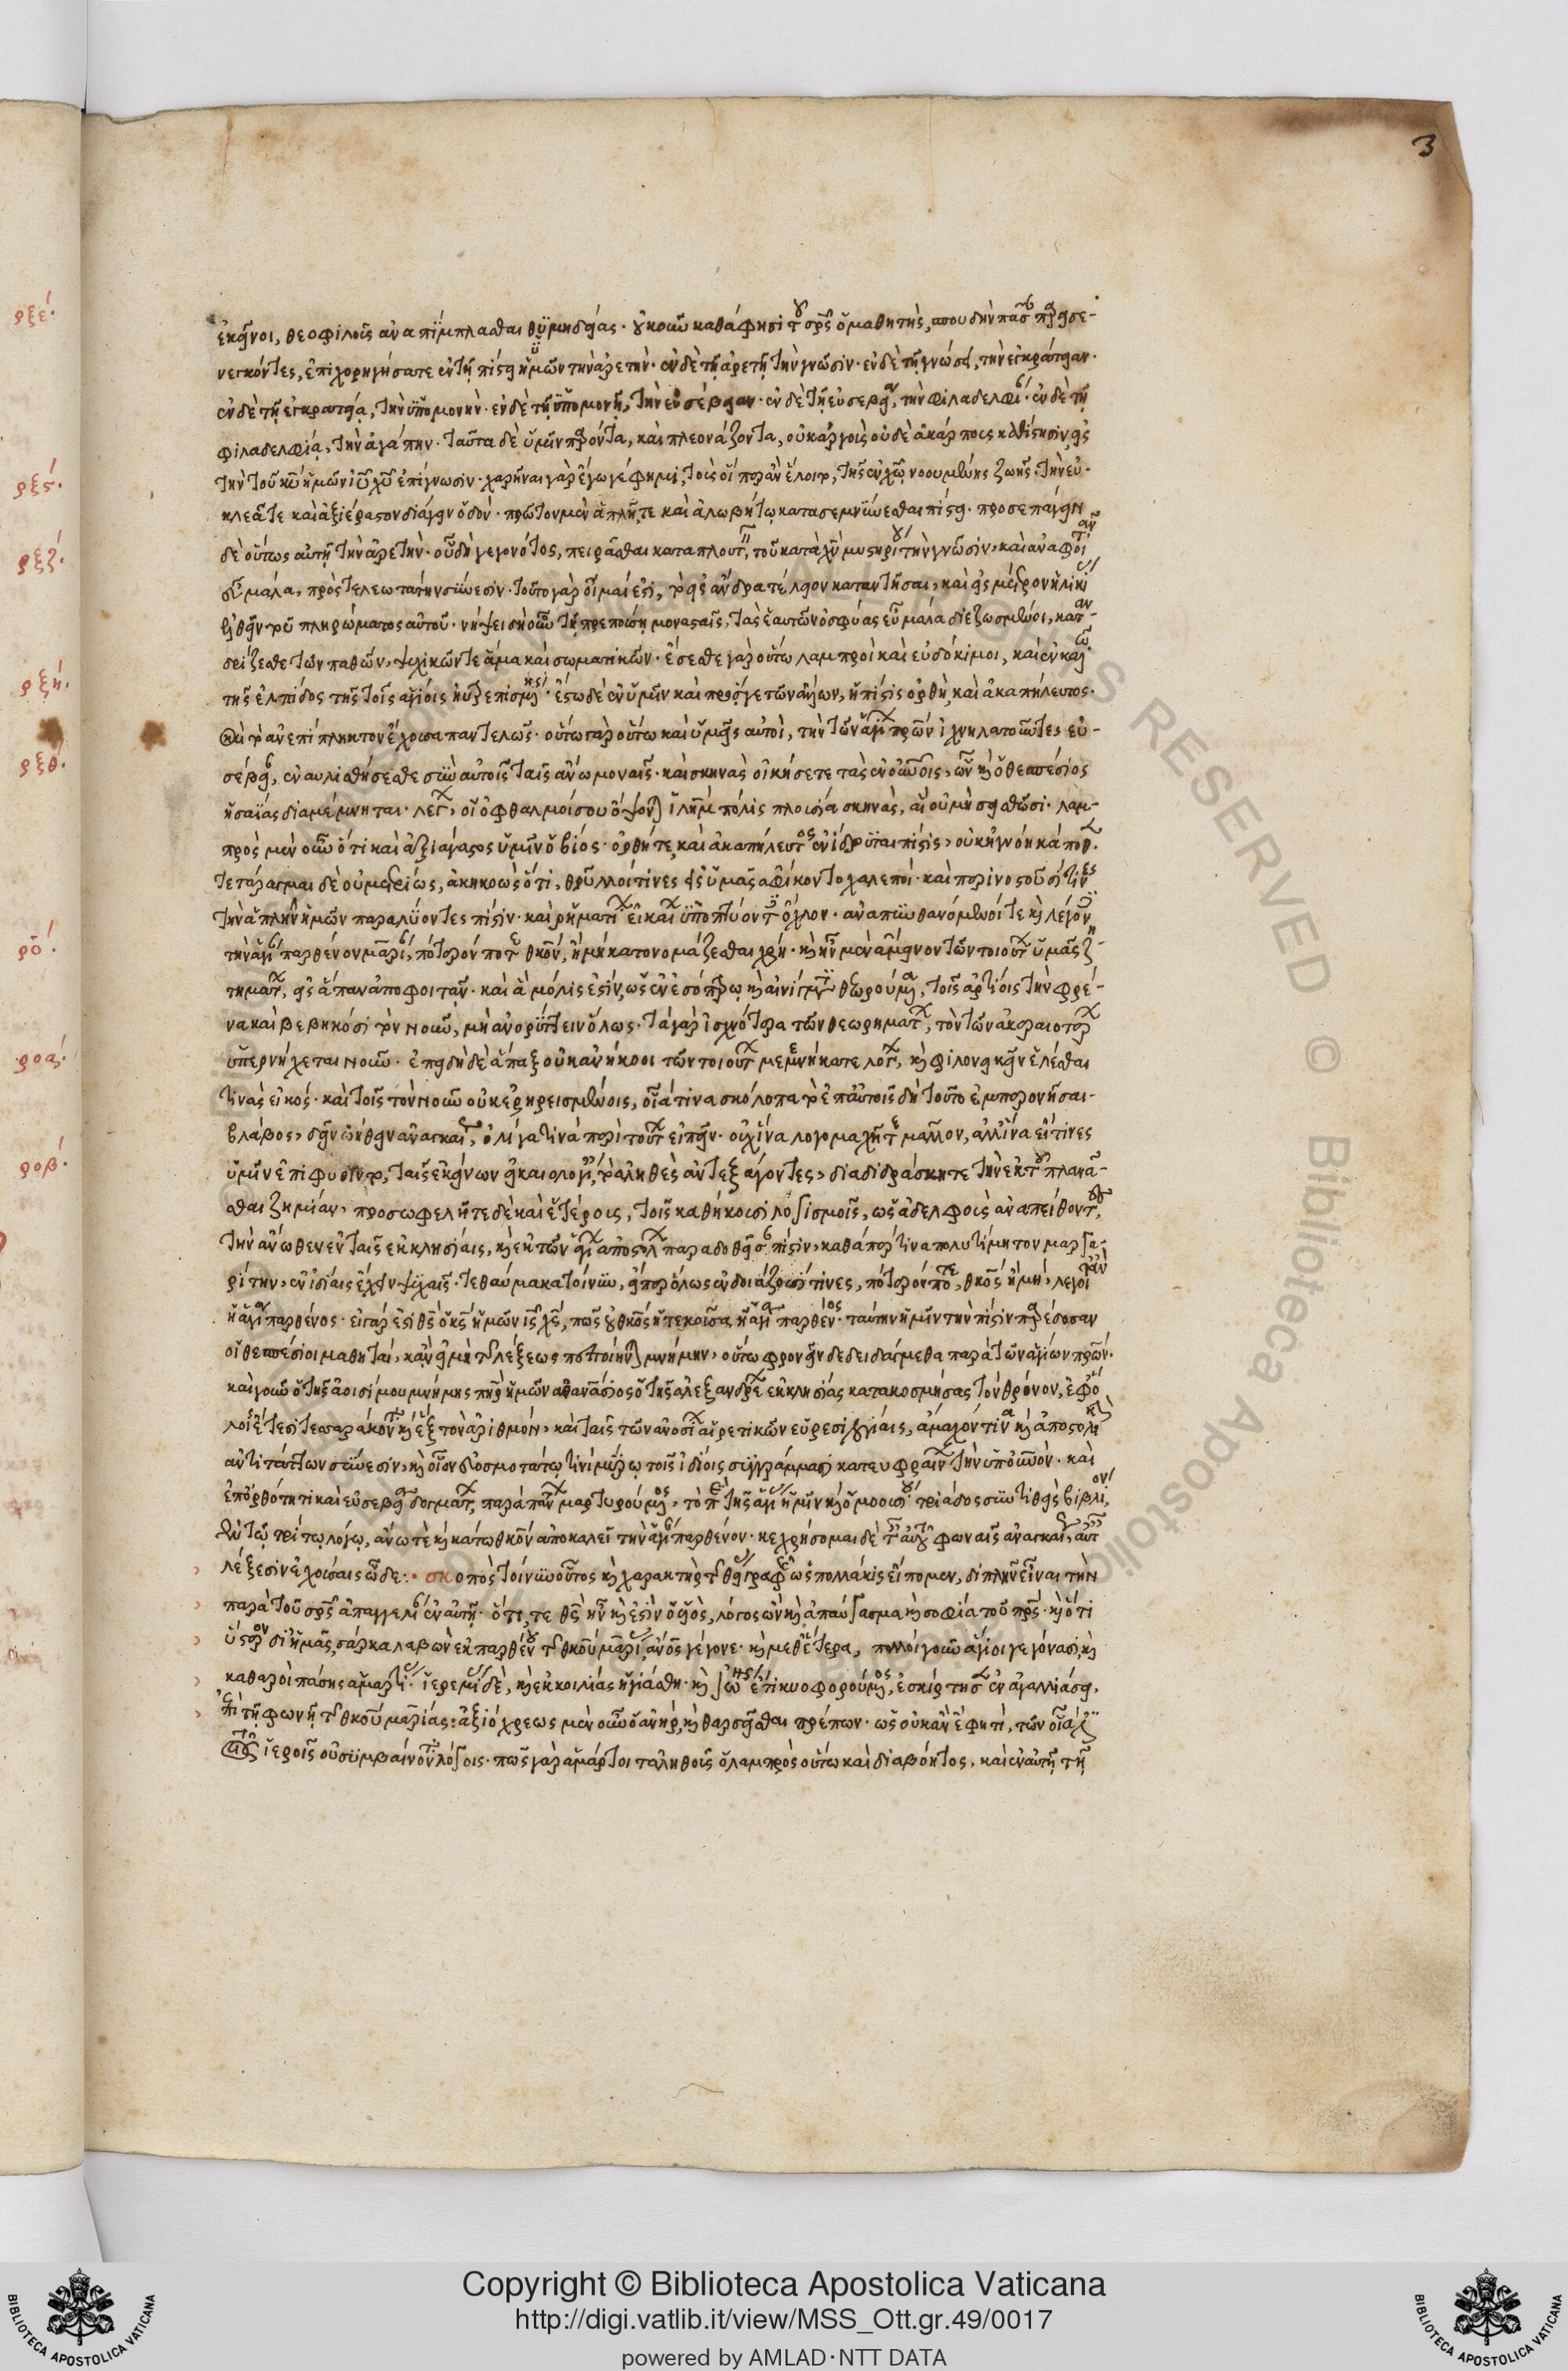 3
ρξε΄.
ρξς΄.
ρξζ΄.
ρξη΄.
ρξθ΄.
ρο΄.
ροα΄.
ροβ΄.
ἐκεῖνοι, θεοφιλοῖς ἀναπίμπλασθαι θυμηδίας. οὐκοῦν καθά φησι τοῦ σρς ὁ μαθητής, σπουδὴν πᾶσαν παρεισε-
νεγκόντες, ἐπιχορηγήσατε ἐν τῇ πίστει ὑμῶν τὴν ἀρετήν. ἐν δὲ τῇ ἀρετῇ τὴν γνῶσιν. ἐν δὲ τῇ γνώσει, τὴν ἐγκράτειαν.
ἐν δὲ τῇ ἐγκρατείᾳ, τὴν ὑπομονήν. ἐν δὲ τῇ ὑπομονῇ, τὴν εὐσέβειαν. ἐν δὲ τῇ εὐσεβείᾳ, τὴν φιλαδελφίαν. ἐν δὲ τῇ
φιλαδελφίᾳ, τὴν ἀγάπην. ταῦτα δὲ ὑμῖν παρόντα, καὶ πλεονάζοντα, οὐκ ἀργοὺς οὐδὲ ἀκάρπους καθίστησιν, εἰς
τὴν τοῦ κυ ἡμῶν ιυ χυ ἐπίγνωσιν. χρῆναι γὰρ ἔγωγέ φημι, τοὺς οἵπερ ἂν ἕλοιντο, τῆς ἐν χω νοουμένης ζωῆς. τὴν εὐ-
κλεᾶ τε καὶ ἀξιέραστον διάγειν ὁδόν. πρῶτον μὲν ἁπλῇ τε καὶ ἀλωβήτῳ κατασεμνύνεσθαι πίστει. προσεπάγειν
δὲ οὕτως αὐτῇ τὴν ἀρετήν. οὗ δὴ γεγονότος, πειρᾶσθαι καταπλουτεῖν, τοῦ κατὰ χν μυστηρίου τὴν γνῶσιν, καὶ ἀναφοιτᾶν
εὖ μάλα, πρὸς τελεωτάτην σύνεσιν. τοῦτο γὰρ οἶμαί ἐστι, τὸ εἰς ἄνδρα τέλειον καταντῆσαι, καὶ εἰς μέτρον ἡλικίας
ἐλθεῖν τοῦ πληρώματος αὐτοῦ. νήψει δὴ οὖν τῇ πρεπούσῃ μονασταῖς, τὰς ἑαυτῶν ὀσφύας εὖ μάλα διεζωσμένοι, καταν-
δρίζεσθε τῶν παθῶν, ψυχικῶν τε ἅμα καὶ σωματικῶν. ἔσεσθε γὰρ οὕτω λαμπροὶ καὶ εὐδόκιμοι, καὶ ἐν καλῷ
τῆς ἐλπίδος τῆς τοῖς ἁγίοις ηὐτρεπισμένης. ἔστω δὲ ἐν ὑμῖν καὶ πρό γε τῶν ἄλλων, ἡ πίστις ὀρθή, καὶ ἀκαπήλευτος.
καὶ τὸ ἀνεπίπληκτον ἔχουσα παντελῶς. οὕτω γὰρ οὕτω καὶ ὑμεῖς αὐτοί, τὴν τῶν ἁγίων πρων ἰχνηλατοῦντες εὐ-
σέβειαν, ἐναυλισθήσεσθε σὺν αὐτοῖς ταῖς ἄνω μοναῖς. καὶ σκηνὰς οἰκήσετε τὰς ἐν οὐνοις, ὧν κ ὁ θεσπέσιος
ἡσαΐας διαμέμνηται. λέγων, οἱ ὀφθαλμοί σου ὄψονται ιλημ πόλις πλουσία σκηνάς, αἳ οὐ μὴ σεισθῶσι. λαμ-
πρὸς μὲν οὖν ὅτι καὶ ἀξιάγαστος ὑμῖν ὁ βίος. ὀρθή τε, καὶ ἀκαπήλευτος ἐνίδρυται πίστις, οὐκ ἠγνόηκά που.
τετάραγμαι δὲ οὐ μετρίως, ἀκηκοὼς ὅτι, θρύλλοι τινὲς εἰς ὑμᾶς ἀφίκοντο χαλεποί. καὶ περινοστοῦσί τινες
τὴν ἁπλῆν ἡμῶν παραλύοντες πίστιν. καὶ ῥηματίων εἰκαίων ὑποπτύοντες ὄχλον. ἀναπυνθανόμενοί τε κ λέγοντες
τὴν ἁγίαν παρθένον μαρίαν, πότερόν ποτε θκον, ἢ μὴ κατονομάζεσθαι χρή. κ ἦν μὲν ἄμεινον τῶν τοιούτων ὑμᾶς ζη-
τημάτων, εἰς ἅπαν ἀποφοιτᾶν. καὶ ἃ μόλις ἐστίν, ὡς ἐν ἐσόπτρῳ κ αἰνίγματι θεωρούμενα, τοῖς ἀρτίοις τὴν φρέ-
να καὶ βεβηκόσι τὸν νοῦν, μὴ ἀνορύττειν ὅλως. τὰ γὰρ ἰσχνότερα τῶν θεωρημάτων, τὸν τῶν ἀκεραιοτέρων
ὑπερνήχεται νοῦν. ἐπειδὴ δὲ ἅπαξ οὐκ ἀνήκοοι τῶν τοιούτων μεμενήκατε λόγων, κ φιλονεικεῖν ἑλέσθαι
τινὰς εἰκός. καὶ τοῖς τὸν νοῦν οὐκ ἐρηρεισμένοις, οἷά τινα σκόλοπα τὸ ἐπ' αὐτοῖς δὴ τοῦτο ἐμπερονῆσαι
βλάβος, δεῖν ᾠήθην ἀναγκαίως, ὀλίγα τινὰ περὶ τούτων εἰπεῖν. οὐχ ἵνα λογομαχῆτε μᾶλλον, ἀλλ' ἵνα εἴ τινες
ὑμῖν ἐπιφύοιντο, ταῖς ἐκείνων εἰκαιολογίαις, τὸ ἀληθὲς ἀντεξάγοντες, διαδιδράσκητε τὴν ἐκ τοῦ πλανᾶ-
σθαι ζημίαν, προσωφελῆτε δὲ καὶ ἑτέροις, τοῖς καθήκουσι λογισμοῖς, ὡς ἀδελφοὺς ἀναπείθοντες
τὴν ἄνωθεν ἐν ταῖς ἐκκλησίαις, κ ἐκ τῶν ἁγίων ἀποστόλων παραδοθεῖσαν πίστιν, καθάπερ τινα πολυτίμητον μαργα-
ρίτην, ἐν ἰδίαις ἔχειν ψυχαῖς. τεθαύμακα τοίνυν, εἴπερ ὅλως ἐνδοιάζουσί τινες, πότερόν ποτε, θκος ἢ μή, λέγοιτ' ἂν
ἡ ἁγία παρθένος. εἰ γάρ ἐστι θς ὁ κς ἡμῶν ις χς, πῶς οὐ θκος ἡ τεκοῦσα, ἡ ἁγία παρθένος. ταύτην ἡμῖν τὴν πίστιν παρέδοσαν
οἱ θεσπέσιοι μαθηταί, κἂν εἰ μὴ τῆς λέξεως πεποίηνται μνήμην, οὕτω φρονεῖν δεδειδάγμεθα παρὰ τῶν ἁγίων πρων.
καὶ γοῦν ὁ τῆς ἀοιδίμου μνήμης πηρ ἡμῶν ἀθανάσιος ὁ τῆς ἀλεξανδρέων ἐκκλησίας κατακοσμήσας τὸν θρόνον, ἐφ' ὅ-
λοις ἔτεσι τεσσαράκοντα κ ἓξ τὸν ἀριθμόν, καὶ ταῖς τῶν ἀνοσίων αἱρετικῶν εὑρεσιλογίαις, ἄμαχόν τινα κ ἀποστολικὴν
ἀντιτάττων σύνεσιν, κ οἷον εὐοσμοτάτῳ τινὶ μύρῳ τοῖς ἰδίοις συγγράμμασι κατευφραίνων τὴν ὑπ' οὐνόν. καὶ
ἐπ' ὀρθότητι καὶ εὐσεβείᾳ δογμάτων, παρὰ πάντων μαρτυρούμενος, τὸ περὶ τῆς ἁγίας ἡμῖν κ ὁμοουσίου τριάδος συντιθεὶς βιβλίον,
ἐν τῷ τρίτῳ λόγῳ, ἄνω τε κ κάτω θκον ἀποκαλεῖ τὴν ἁγίαν παρθένον. κεχρήσομαι δὲ ταῖς αὐτοῦ φωναῖς ἀναγκαίως, αὐταῖς
λέξεσιν ἐχούσαις ὧδε:. σκοπὸς τοίνυν οὗτος κ χαρακτὴρ τῆς θείας γραφῆς ὡς πολλάκις εἴπομεν, διπλῆν εἶναι τὴν
παρὰ τοῦ σρς ἀπαγγελίαν ἐν αὐτῇ. ὅτι, τε θς ἦν κ ἐστὶν ὁ υἱός, λόγος ὢν κ ἀπαύγασμα κ σοφία τοῦ πρς. κ ὅτι
ὕστερον δι' ἡμᾶς, σάρκα λαβὼν ἐκ παρθένου τῆς θκου μαρίας, ανος γέγονε. κ μεθ' ἕτερα, πολλοὶ γοῦν ἅγιοι γεγόνασι, κ
καθαροὶ πάσης ἁμαρτίας. ἱερεμίας δέ, κ ἐκ κοιλίας ἡγιάσθη. κ ἰωάννης ἔτι κυοφορούμενος, ἐσκίρτησεν ἐν ἀγαλλιάσει,
ἐπὶ τῇ φωνῇ τῆς θκου μαρίας: ἀξιόχρεως μὲν οὖν ὁ ἀνήρ, κ θαρσεῖσθαι πρέπων. ὡς οὐκ ἂν ἔφη τι, τῶν ὅσα μὴ
τοῖς ἱεροῖς οὐ συμβαίνοντα λόγοις. πῶς γὰρ ἁμάρτοι τἀληθοῦς ὁ λαμπρὸς οὕτω καὶ διαβόητος, καὶ ἐν αὐτῇ τῇ
ALL RIGHTS RESERVED © Biblioteca Apostolica
BIBLIOTECA APOSTOLICA VATICANA
Copyright © Biblioteca Apostolica Vaticana
http://digi.vatlib.it/view/MSS_Ott.gr.49/0017
powered by AMLAD·NTT DATA
BIBLIOTECA APOSTOLICA VATICANA